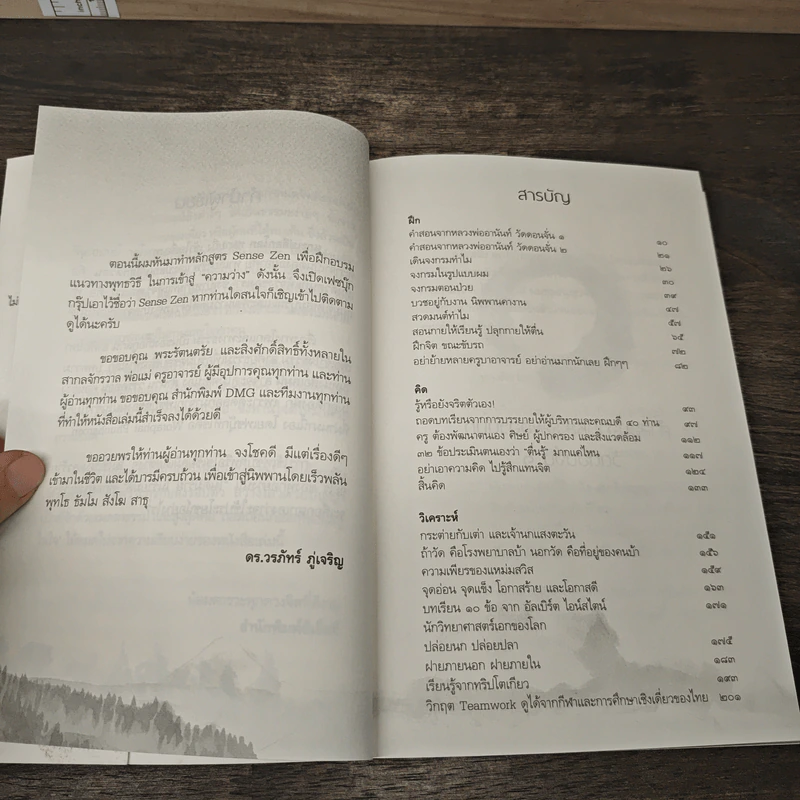 ตอนนี้ผมหันมาทำหลักสูตร Sense Zen เพื่อฝึกอบรม
แนวทางพุทธวิธี ในการเข้าสู่ “ความว่าง” ดังนั้น จึงเปิดเฟซบุ๊ก
กรุ๊ปเอาไว้ชื่อว่า Sense Zen หากท่านใดสนใจก็เชิญเข้าไปติดตาม
ดูได้นะครับ
ขอขอบคุณ พระรัตนตรัย และสิ่งศักดิ์สิทธิ์ทั้งหลายใน
สากลจักรวาล พ่อแม่ ครูอาจารย์ ผู้มีอุปการคุณทุกท่าน และท่าน
ผู้อ่านทุกท่าน ขอขอบคุณ สำนักพิมพ์ DMG และทีมงานทุกท่าน
ที่ทำให้หนังสือเล่มนี้สำเร็จลงได้ด้วยดี
ขออวยพรให้ท่านผู้อ่านทุกท่าน จงโชคดี มีแต่เรื่องดีๆ
เข้ามาในชีวิต และได้บารมีครบถ้วน เพื่อเข้าสู่นิพพานโดยเร็วพลัน
พุทโธ ธัมโม สังโฆ สาธุ
ดร.วรภัทร์ ภู่เจริญ
ไม่
สารบัญ
ฝึก
คำสอนจากหลวงพ่ออานันท์ วัดดอนจั่น ๑ ๑๐
คำสอนจากหลวงพ่ออานันท์ วัดดอนจั่น ๒ ๒๑
เดินจงกรมทำไม ๒๖
จงกรมในรูปแบบผม ๓๐
จงกรมตอนป่วย ๓๙
บวชอยู่กับงาน นิพพานคางาน ๔๗
สวดมนต์ทำไม ๕๗
สอนกายให้เรียนรู้ ปลุกกายให้ตื่น ๖๕
ฝึกจิต ขณะขับรถ ๗๒
อย่าย้ายหลายครูบาอาจารย์ อย่าอ่านมากนักเลย ฝึกๆๆ ๘๒
คิด
รู้หรือยังจริตตัวเอง! ๙๓
ถอดบทเรียนจากการบรรยายให้ผู้บริหารและคณบดี ๔๐ ท่าน ๙๗
ครู ต้องพัฒนาตนเอง ศิษย์ ผู้ปกครอง และสิ่งแวดล้อม ๑๑๒
๓๒ ข้อประเมินตนเองว่า “ตื่นรู้” มากแค่ไหน ๑๑๗
อย่าเอาความคิด ไปรู้สึกแทนจิต ๑๒๔
สิ้นคิด ๑๓๓
วิเคราะห์
กระต่ายกับเต่า และเจ้านกแสงตะวัน ๑๕๑
ถ้าวัด คือโรงพยาบาลบ้า นอกวัด คือที่อยู่ของคนบ้า ๑๕๖
ความเพียรของแหม่มสวิส ๑๕๙
จุดอ่อน จุดแข็ง โอกาสร้าย และโอกาสดี ๑๖๓
บทเรียน ๑๐ ข้อ จาก อัลเบิร์ต ไอน์สไตน์ ๑๗๑
นักวิทยาศาสตร์เอกของโลก
ปล่อยนก ปล่อยปลา ๑๗๕
ฝ่ายภายนอก ฝ่ายภายใน ๑๘๓
เรียนรู้จากทริปโตเกียว ๑๙๓
วิกฤต Teamwork ดูได้จากกีฬาและการศึกษาเชิงเดี่ยวของไทย ๒๐๑